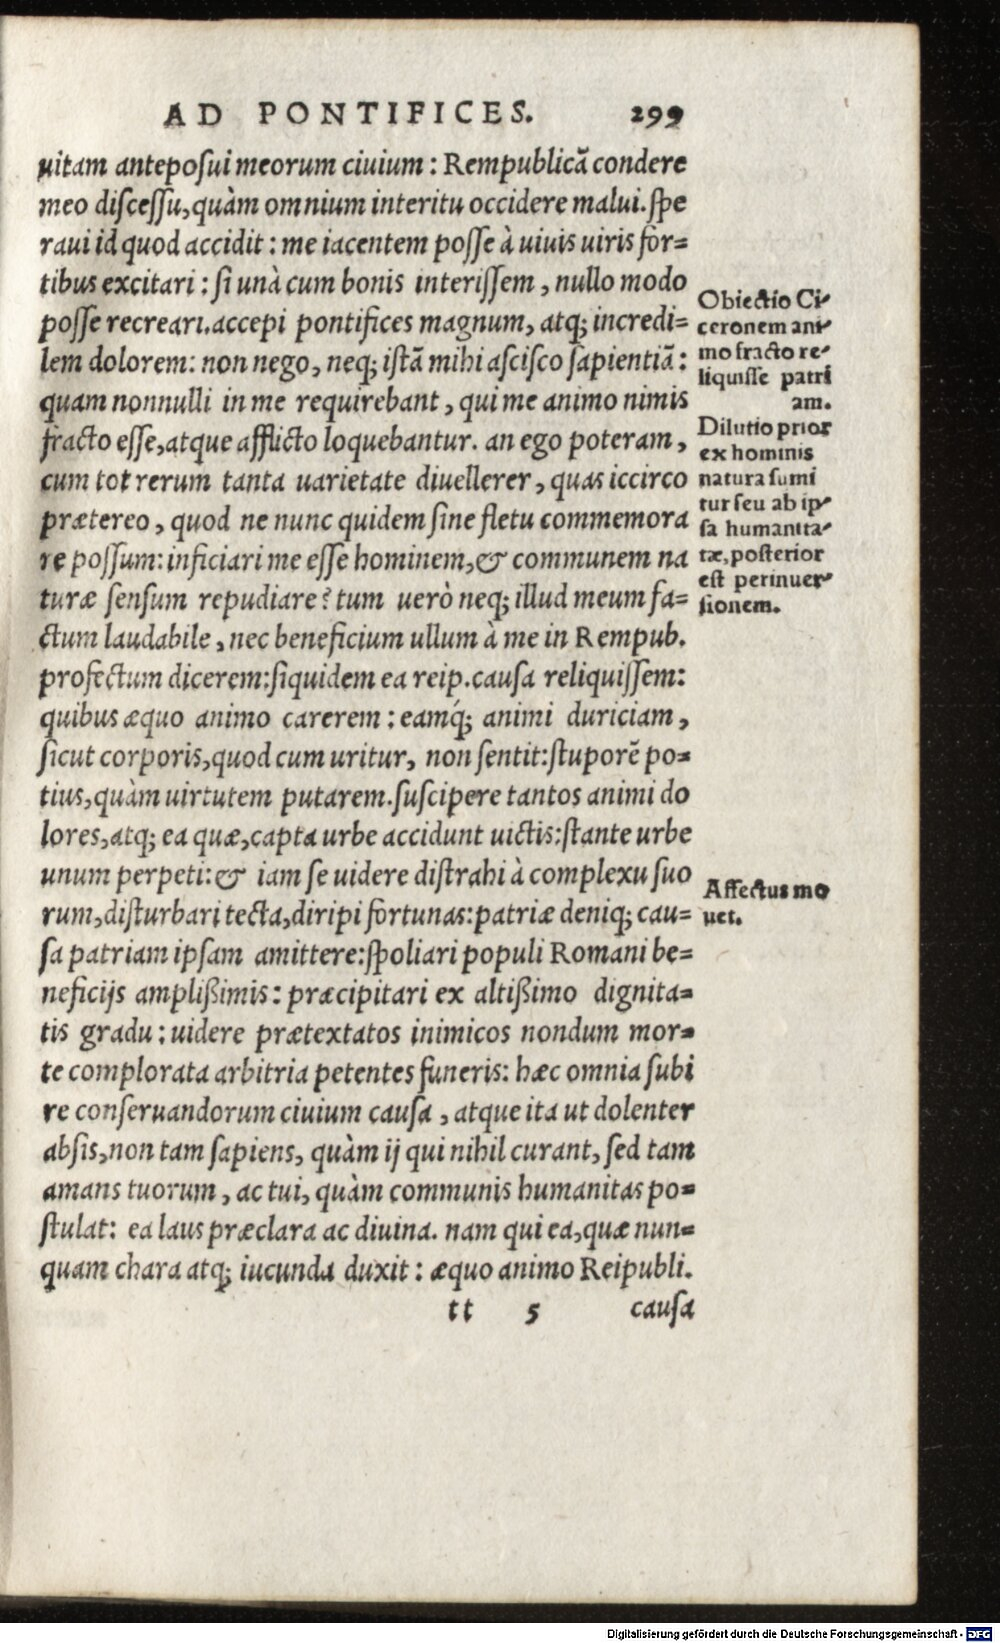 AD PONTIFICES. 299
uitam anteposui meorum ciuium : Rempublicã condere
meo discessu, quàm omnium interitu occidere malui. spe
raui id quod accidit : me iacentem posse à uiuis uiris for=
tibus excitari : si unà cum bonis interissem, nullo modo
posse recreari. accepi pontifices magnum, atq; incredi=
lem dolorem: non nego, neq; istã mihi ascisco sapientiã :
quam nonnulli in me requirebant, qui me animo nimis
fracto esse, atque afflicto loquebantur. an ego poteram,
cum tot rerum tanta uarietate diuellerer, quas iccirco
prætereo, quod ne nunc quidem sine fletu commemora
re possum: inficiari me esse hominem, & communem na
turæ sensum repudiare? tum uerò neq; illud meum fa=
ctum laudabile, nec beneficium ullum à me in Rempub.
profectum dicerem: siquidem ea reip. causa reliquissem:
quibus æquo animo carerem : eamq́; animi duriciam,
sicut corporis, quod cum uritur, non sentit: stuporẽ po=
tius, quàm uirtutem putarem. suscipere tantos animi do
lores, atq; ea quæ, capta urbe accidunt uictis: stante urbe
unum perpeti: & iam se uidere distrahi à complexu suo
rum, disturbari tecta, diripi fortunas: patriæ deniq; cau=
sa patriam ipsam amittere: spoliari populi Romani be=
neficijs amplißimis: præcipitari ex altißimo dignita=
tis gradu : uidere prætextatos inimicos nondum mor=
te complorata arbitria petentes funeris: hæc omnia subi
re conseruandorum ciuium causa, atque ita ut dolenter
absis, non tam sapiens, quàm ij qui nihil curant, sed tam
amans tuorum, ac tui, quàm communis humanitas po=
stulat: ea laus præclara ac diuina. nam qui ea, quæ nun=
quam chara atq; iucunda duxit : æquo animo Reipubli.
tt 5 causa
Obiectio Ci-
ceronem ani-
mo fracto re-
liquisse patri
am.
Dilutio prior
ex hominis
natura sumi
tur seu ab ip-
sa humanita-
tæ, posterior
est per inuer-
sionem.
Affectus mo
uet.
Digitalisierung gefördert durch die Deutsche Forschungsgemeinschaft - DFG